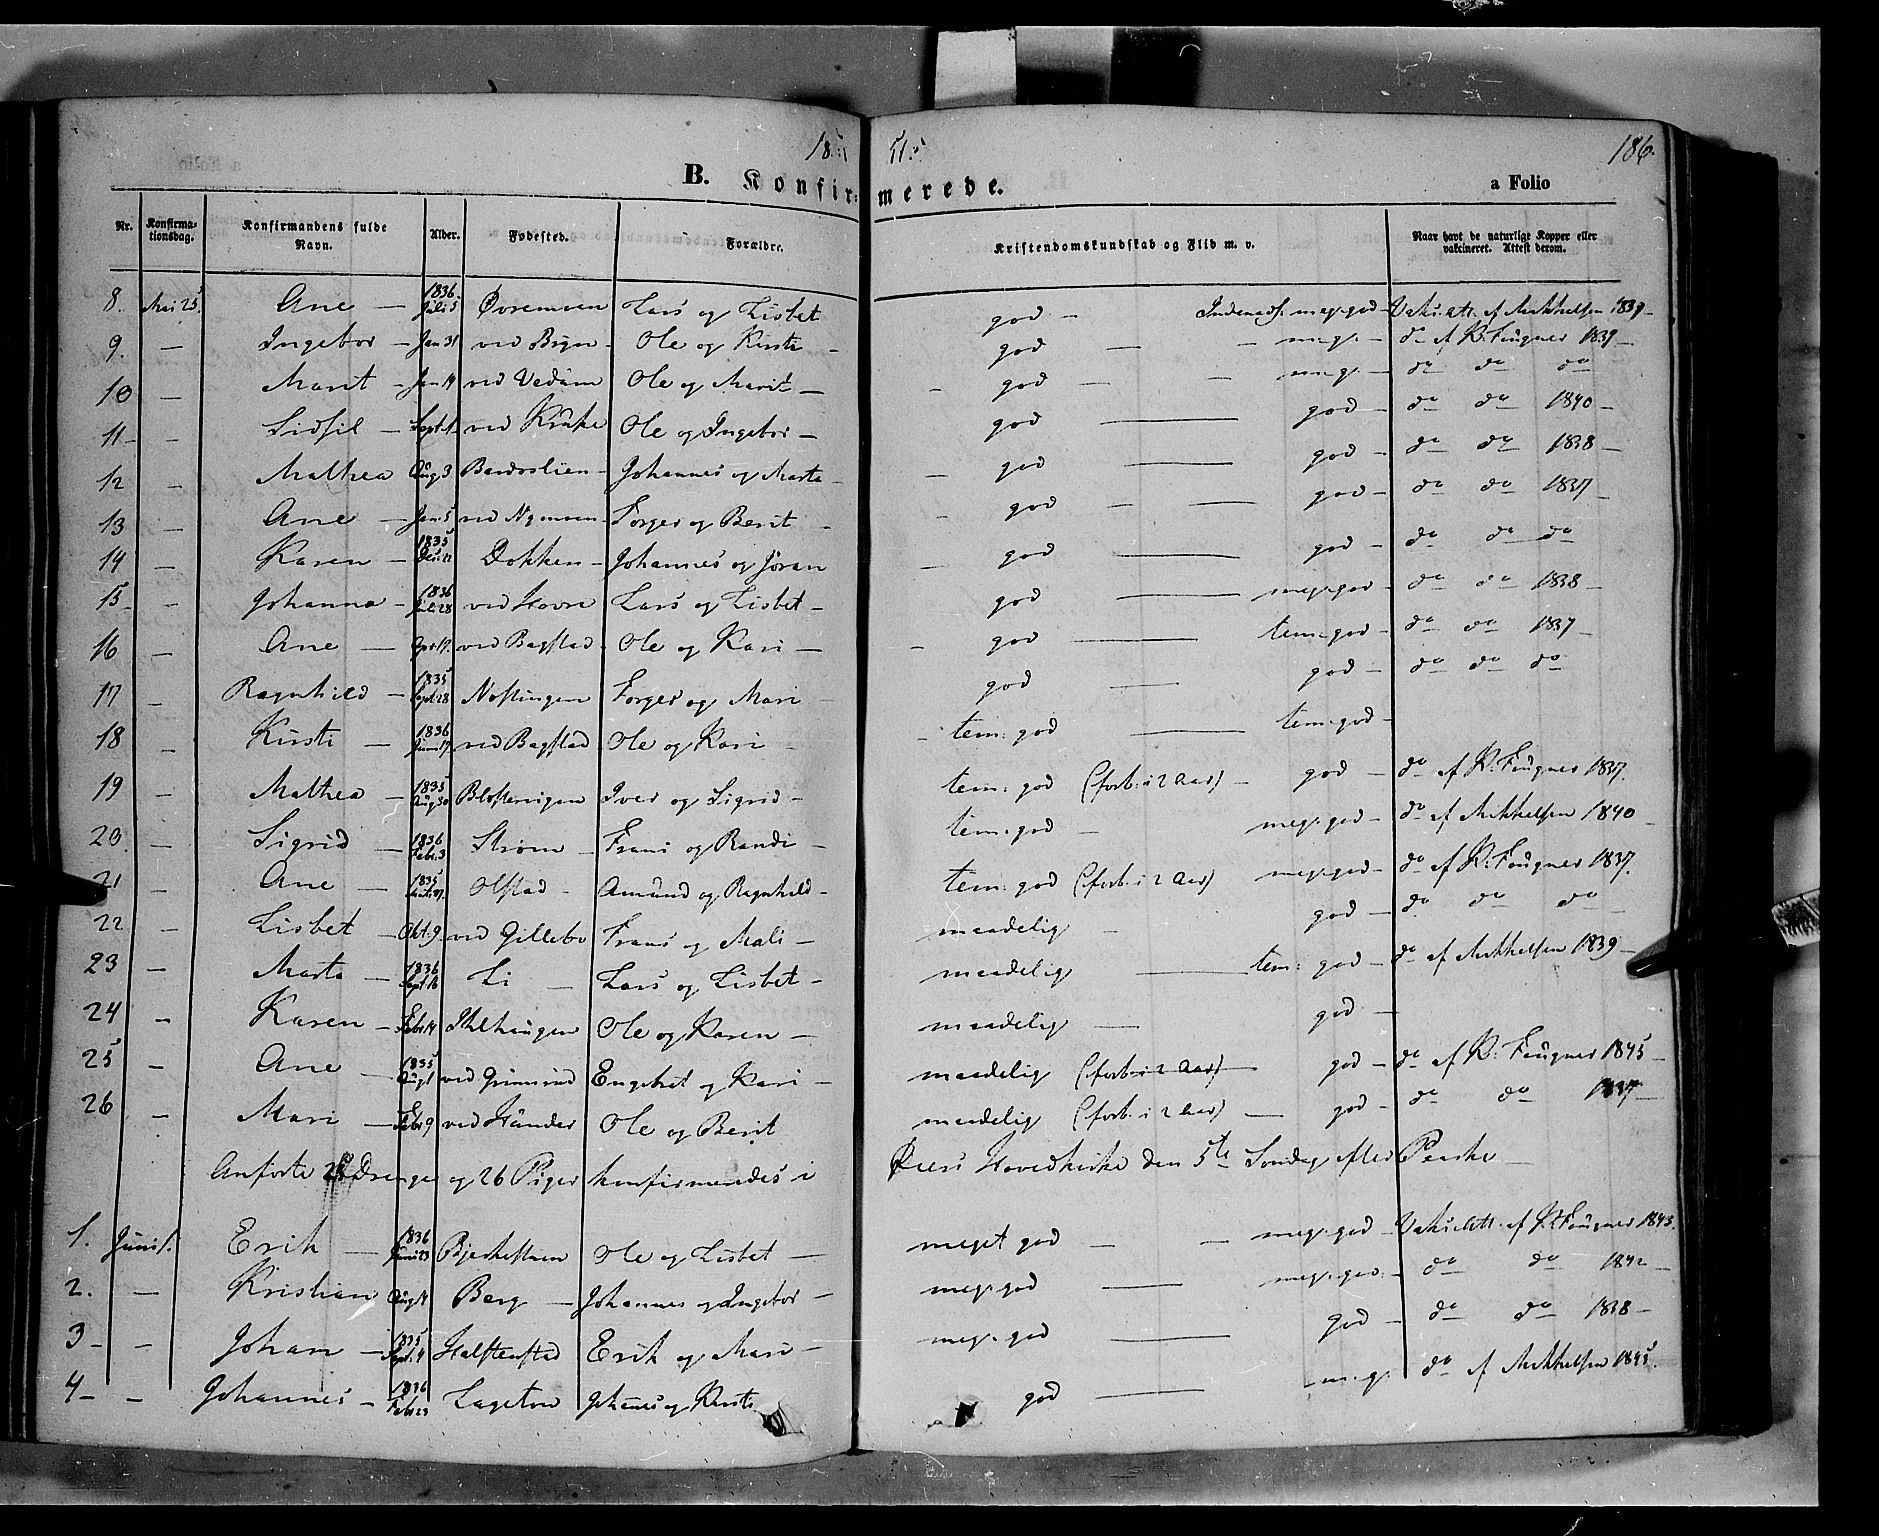 1851.
186.
B. Konfirmerede.
a Folio
Nr. Konfirmationsdag. Konfirmandens fulde Navn. Alder. Fødested. Forældre. Kristendomskundskab og Flid m. v. Naar havt de naturlige Kopper eller vakcineret. Attest derom.
8. Mai 25. Ane — 1836 Juli 5 Øvremoen Lars og Lisbet god — meg: god — Vaks: att: af Mikkelsen 1839 —
9. — Ingebor — Jan 31 ved Bryn — Ole og Kirsti — god — — meg: — do af K: Fougner 1837 —
10 — Marit — Jan 14 ved Vedum Ole og Marit — god — — meg: — do do do
11 — — Sidsil — Sept: 1 ved Kruke Ole og Ingebor — god — god — do do 1840 —
12 — Mathea Aug 3 Baardslien — Johannes og Marta — god — god — do do 1838 —
13 — Ane — Jan: 5 ved Nymoen — Torger og Berit — god — — god — do do 1837 —
14 — Karen — 1835 Des: 22 Dokken — Johannes og Jöran god — god — do do do
15 — Johanna — 1836 Juli 28 ved Hovre Lars og Lisbet — god — meg: god — do do 1838 —
16 — Ane — ved Bagstad — Ole og Kari — god — tem: god — do do 1837 —
17 — Ragnhild — 1835 Sept: 28 Torger og Mari god — god — do do do
18 — Kirsti — 1836 Juni 17 ved Bagstad Ole og Kari — tem: god — tem: god —
19 — Mathea — 1835 Aug 30 Iver og Sigrid — tem: god (forb: i 2 Aar) — god — do af K: Fougner 1837.
20. — Sigrid — 1836 Febr: 3 Strøm — Frans og Randi — tem: god — meg: god — do af Mikkelsen 1840 —
21 — Ane — 1835 Olstad — Amund og Ragnhild — tem: god (forb: i 2 Aar) meg: god — do af K: Fougner 1837.
22 — Lisbet — Okt: 9 ved Gillebo Frans og Mali — maadelig — god — do do do
23 — Marta — 1836 Sept: 16 Li — Lars og Lisbet — maadelig — tem: god — do af Mikkelsen 1839 —
24 — Karen — Febr 14 Ole og Karen — maadelig — god —
25 — Ane — 1835 Aug 1 ved Engebret og Kari — maadelig (forb: i 2 Aar) — god — do af K: Fougner 1845 —
26 — Mari — Febr 9 ved Ole og Berit maadelig (forb: i 2 Aar) — god — do do 1837 —
Anførte Drenge og 26 Piger konfirmeredes i Øiers Hovedkirke den 5te Søndag efter Paaske —
1. Juni 1. Erik — 1836 Juni 23 Ole og Lisbet — meget god — — meg: god — Vaks: att: af K: Fougner 1843.
2. — Kristian Aug 14 Berg — Johannes og Ingebor — meg: god — meg: god — do do 1842 —
3 — — Johan — 1835 Sept: 4 Halstenstad Erik og Mari — meg: god — god — do do 1838 —
4 — — Johannes — 1836 Febr 23 Lageton Johannes og Kirsti god — meg: do af Mikkelsen 1845.